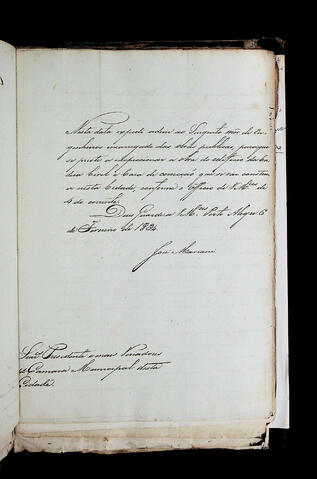 Nesta data expedi ordem ao Sargento mór de En-
genheiros encarregado das obras publicas, para que
se preste a inspeccionar a obra do edificio da Ca-
dêa Civil e Casa de correcção que se vai construir
nesta Cidade, conforme o officio de V. Mces de
4 do corrente.
Deus Guarde a V. Mces Porto Alegre 6
de Fevereiro de 1834.
José Mariani
Snres Presidente e mais Vereadores
da Camara Municipal desta
Cidade.